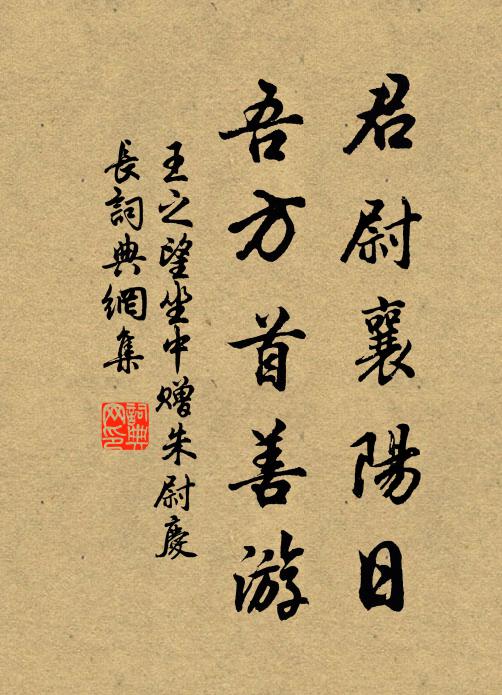 君尉襄陽日
吾方首善游
王之望坐中贈朱尉慶
長詞典網集
詞典网印